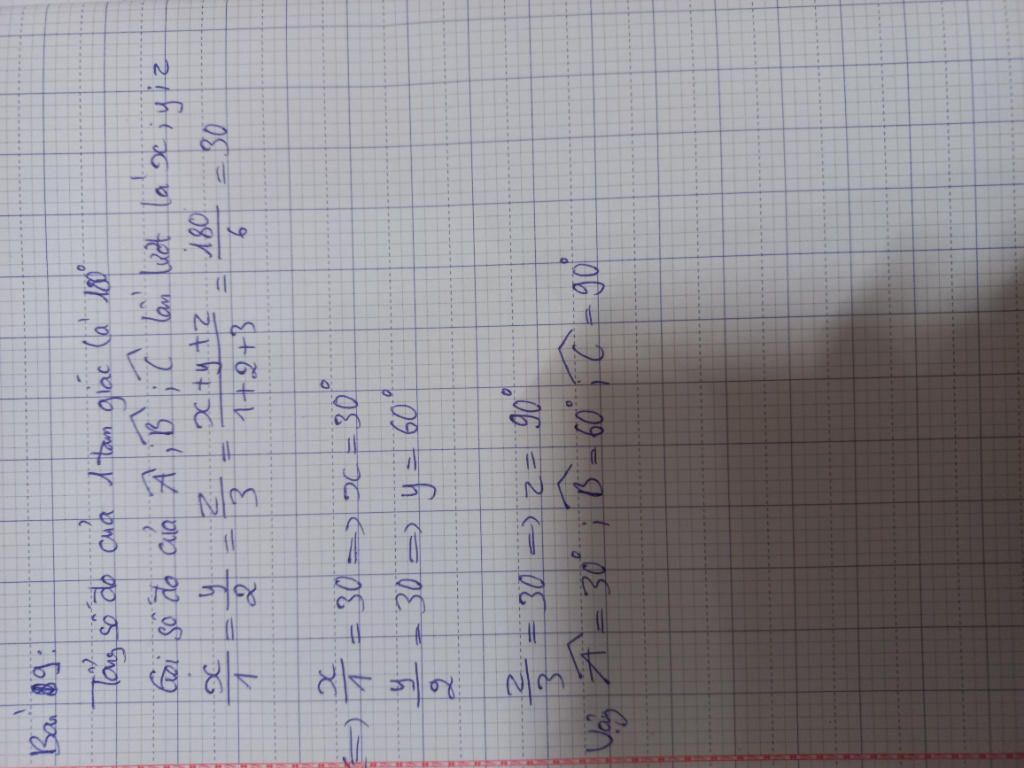 Bài 9:
Tổng số đo của 1 tam giác là 180°
Gọi số đo của Â; B̂; Ĉ lần lượt là x; y; z
x/1 = y/2 = z/3 = x+y+z/1+2+3 = 180/6 = 30
=> x/1 = 30 => x = 30°
y/2 = 30 => y = 60°
z/3 = 30 => z = 90°
Vậy Â = 30°; B̂ = 60°; Ĉ = 90°